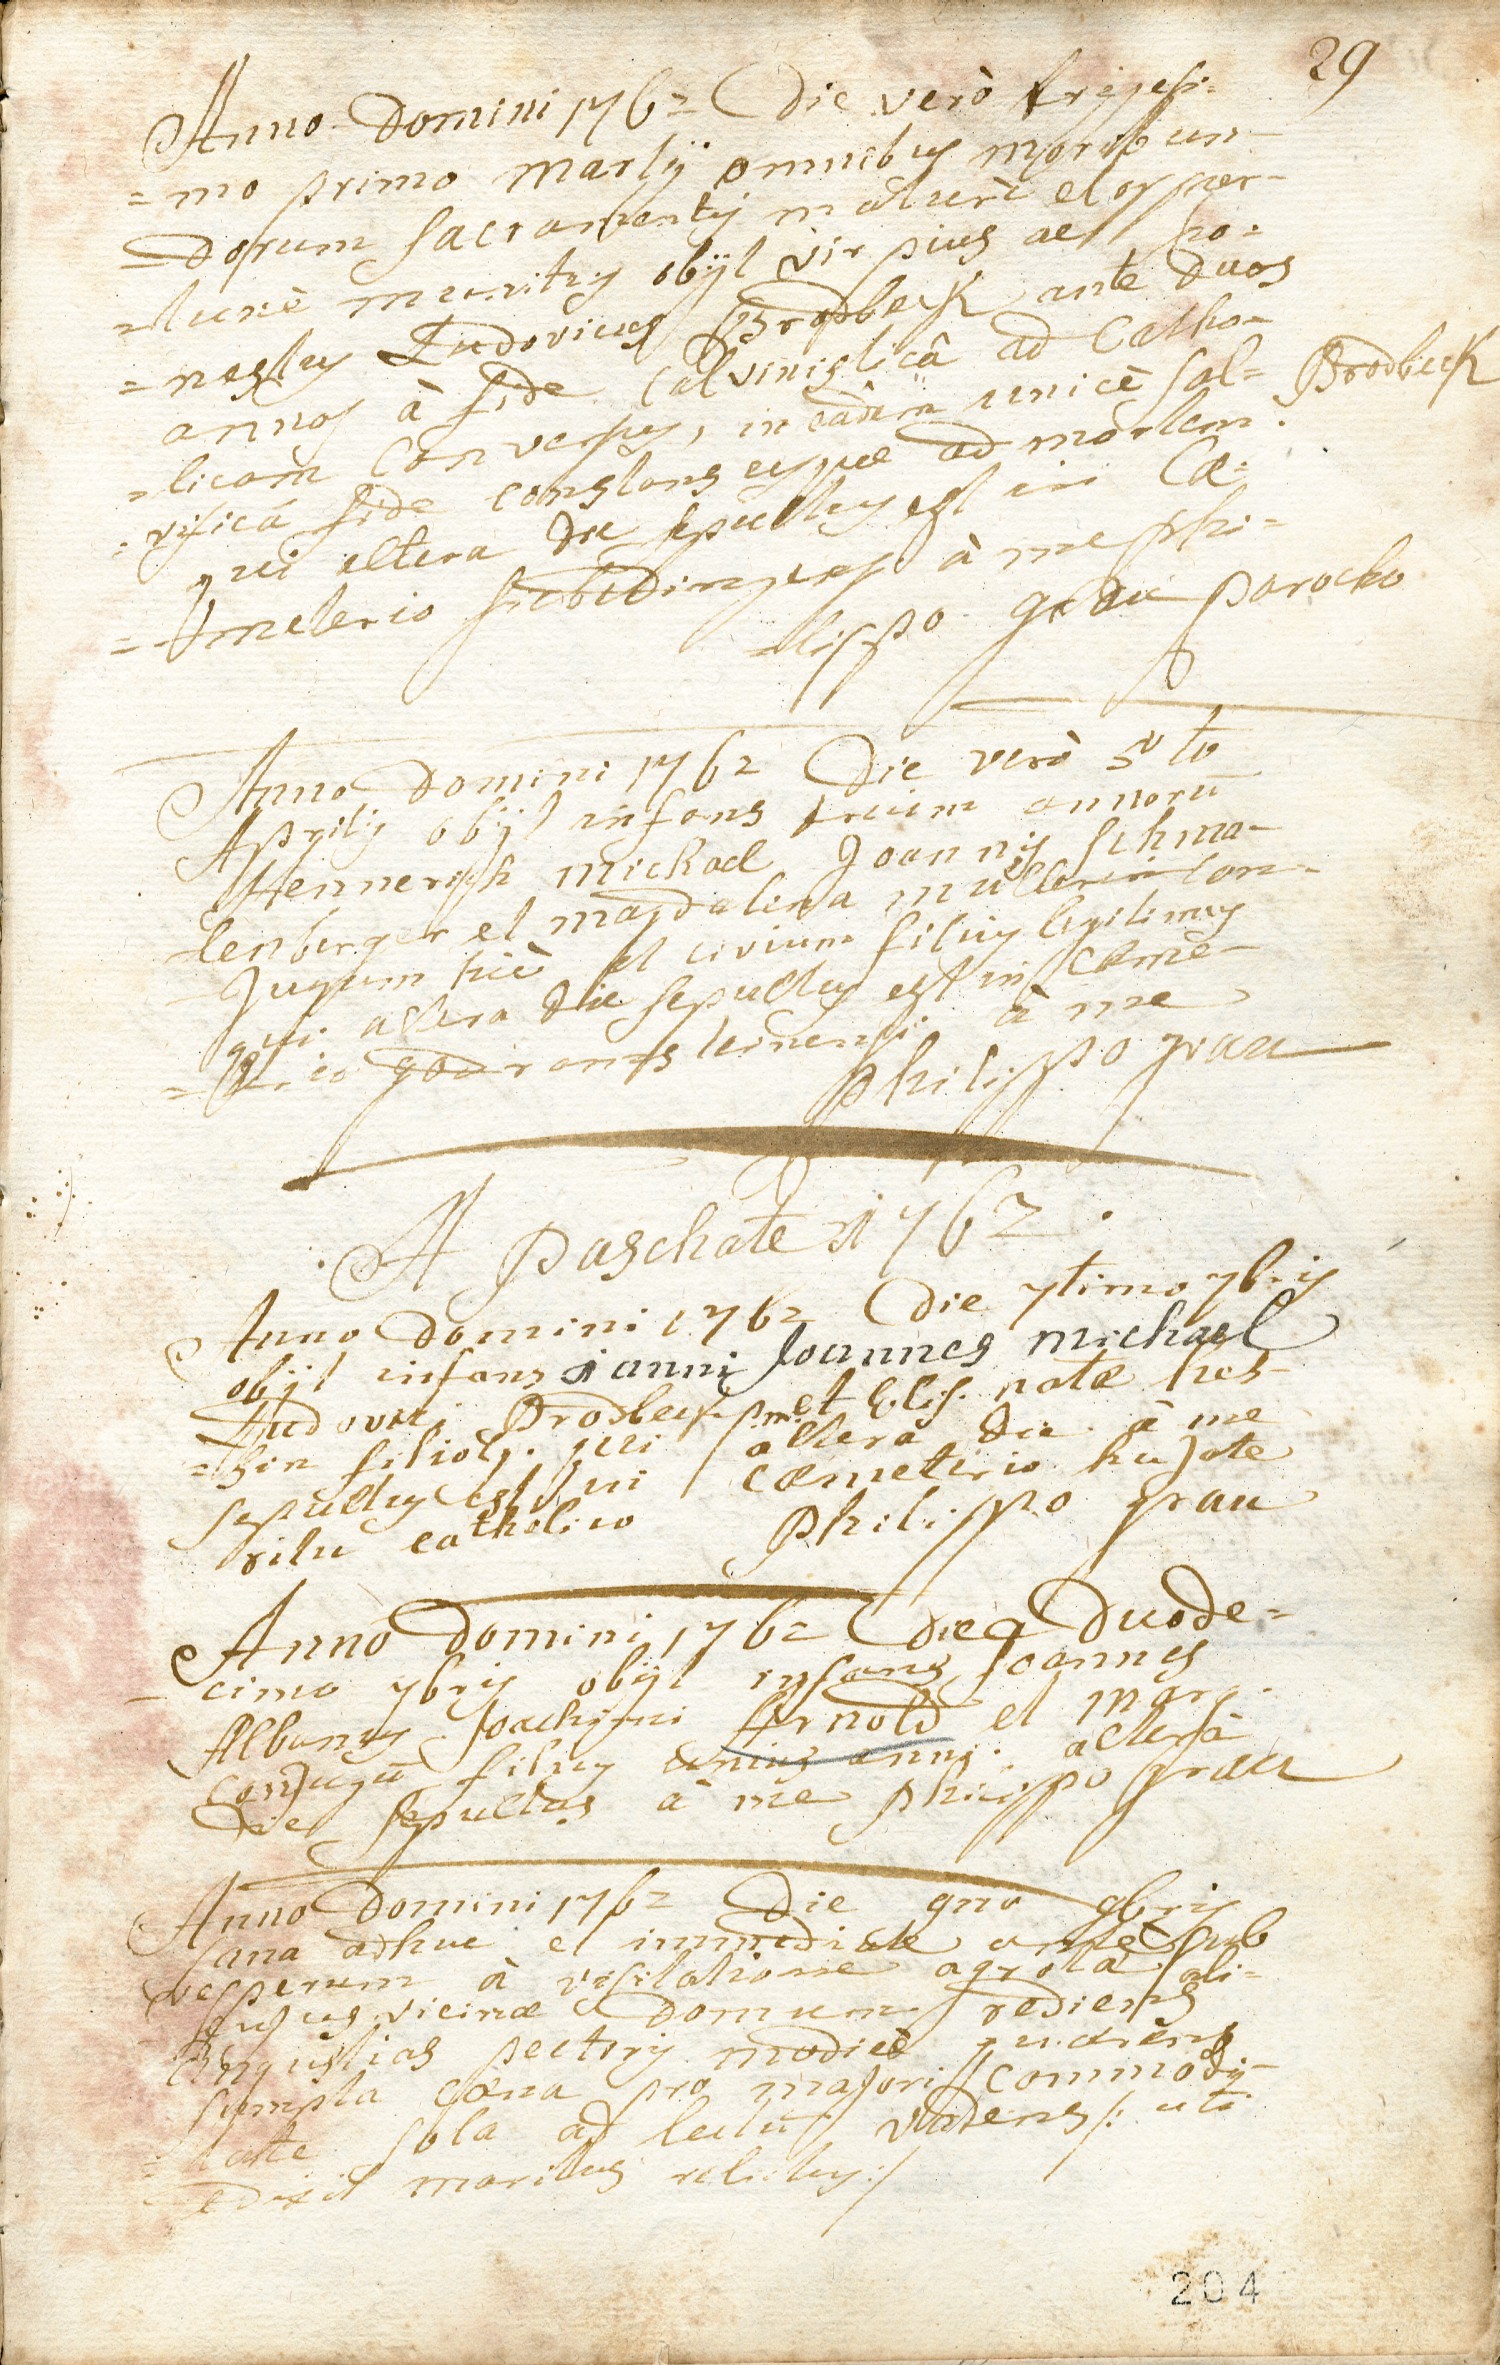 29
Anno Domini 1762 Die verò trigesi=
=mo primo martÿ omnibus moribun-
=dorum sacramentis maturè et oppor-
=tunè munitus obÿt vir pius ac ho-
=nestus Ludovicus Brodbeck ante duos
annos à fide Calvinisticâ ad Catho-
=licam Conversus, in eâdem unicè sal=
Brodbeck
=vificâ fide constans usque ad mortem.
qui altera die sepultus est in Cœ=
=meterio à me Phi=
=lippo grau parocho
Anno Domini 1762 Die verò 5to
Aprilis obÿt infans trium annorū
Hennerich michael Joannis Schma-
lenberger et magdalena müllerin con-
Jugum hic et civium filius legitimus
qui altera die sepultus est in Cœme-
=terio godramsteinensi à me
Philippo grau
A Paschate 1762.
Anno Domini 1762 Die 7timo 7bris
obÿt infans 1 anni Joannes michael
Ludovici Brodbeck p.m. et Elis. natæ hes-
=sin filiolus. qui altera die à me
sepultus est in cœmeterio hujate
ritu catholico Philippo grau
Anno Domini 1762 Die Duode=
=cimo 7bris obÿt infans Joannes
Albanus Joachimi Arnold et marg.
Conjugū filius unius anni. alterâ
die sepultus à me Philippo grau
Anno Domini 1762 Die 9no 9bris
sana adhuc et immediate ante sub
vesperum à visitatione ægrotæ ali-
cujus vicinæ domum rediens
Angustias pectoris modicè quærens
sumpta cœna pro majori commodi-
=tate sola ad lectū vadens /: uti
edixit maritus relictus :/
204